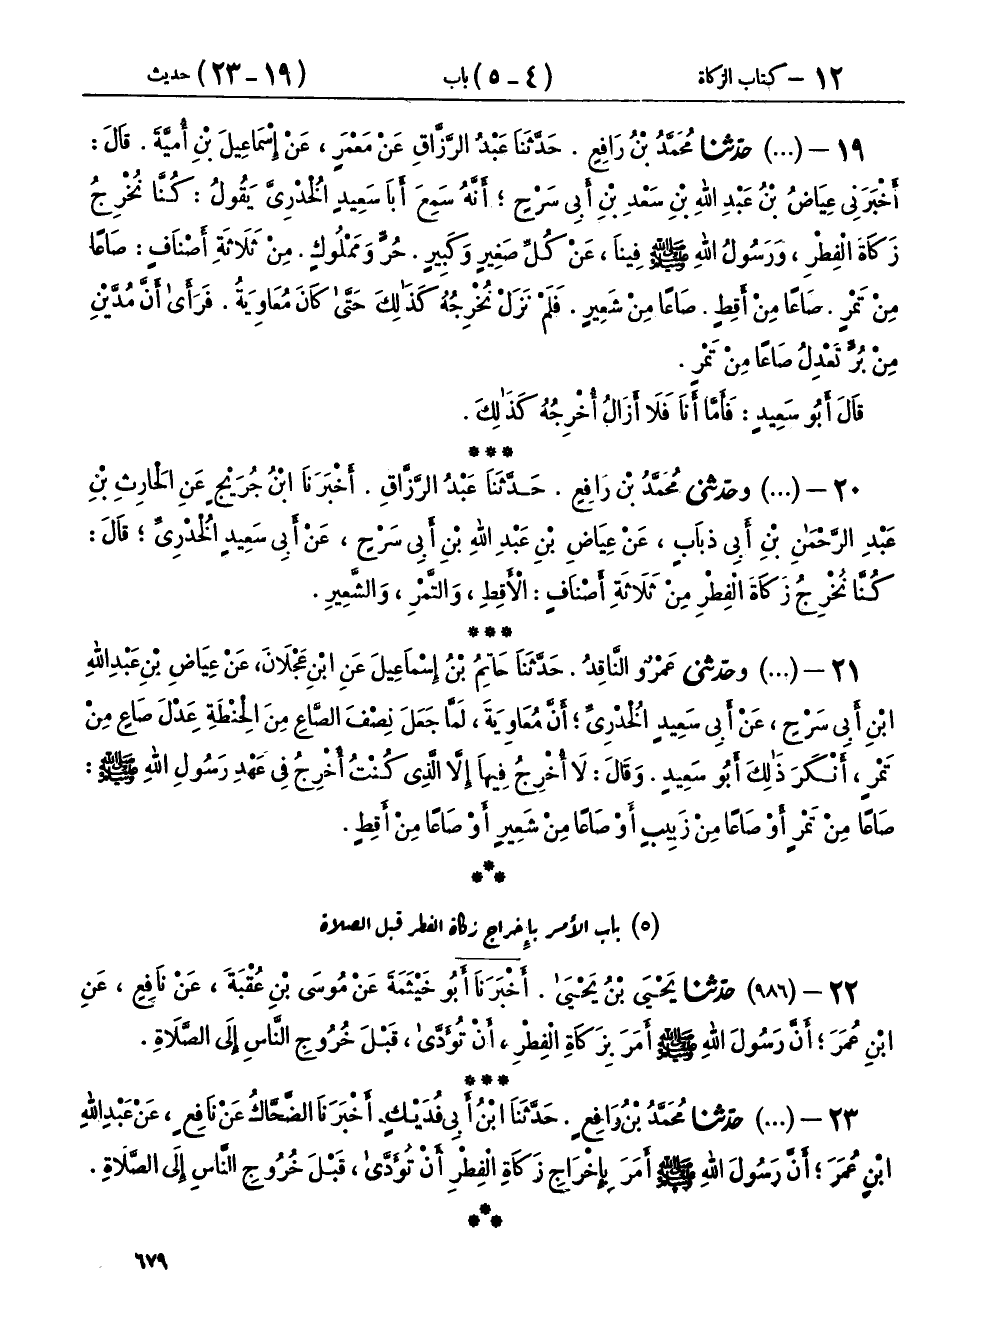 ١٢ – كتاب الزكاة (٤ – ٥) باب (١٩ – ٢٣) حديث
١٩ – (...) حدّثنا مُحَمَّدُ بْنُ رَافِعٍ . حَدَّثَنَا عَبْدُ الرَّزَّاقِ عَنْ مَعْمَرٍ ، عَنْ إِسْمَاعِيلَ بْنِ أُمَيَّةَ . قَالَ :
أَخْبَرَنِي عِيَاضُ بْنُ عَبْدِ اللهِ بْنِ سَعْدِ بْنِ أَبِي سَرْحٍ ؛ أَنَّهُ سَمِعَ أَبَا سَعِيدٍ الْخُدْرِيَّ يَقُولُ : كُنَّا نُخْرِجُ
زَكَاةَ الْفِطْرِ ، وَرَسُولُ اللهِ ﷺ فِينَا ، عَنْ كُلِّ صَغِيرٍ وَكَبِيرٍ . حُرٍّ وَمَمْلُوكٍ . مِنْ ثَلَاثَةِ أَصْنَافٍ : صَاعًا
مِنْ تَمْرٍ . صَاعًا مِنْ أَقِطٍ . صَاعًا مِنْ شَعِيرٍ . فَلَمْ نَزَلْ نُخْرِجُهُ كَذَٰلِكَ حَتَّىٰ كَانَ مُعَاوِيَةُ . فَرَأَىٰ أَنَّ مُدَّيْنِ
مِنْ بُرٍّ تَعْدِلُ صَاعًا مِنْ تَمْرٍ .
قَالَ أَبُو سَعِيدٍ : فَأَمَّا أَنَا فَلَا أَزَالُ أُخْرِجُهُ كَذَٰلِكَ .
***
٢٠ – (...) وحدّثني مُحَمَّدُ بْنُ رَافِعٍ . حَدَّثَنَا عَبْدُ الرَّزَّاقِ . أَخْبَرَنَا ابْنُ جُرَيْجٍ عَنِ الْحَارِثِ بْنِ
عَبْدِ الرَّحْمَٰنِ بْنِ أَبِي ذُبَابٍ ، عَنْ عِيَاضِ بْنِ عَبْدِ اللهِ بْنِ أَبِي سَرْحٍ ، عَنْ أَبِي سَعِيدٍ الْخُدْرِيِّ ؛ قَالَ :
كُنَّا نُخْرِجُ زَكَاةَ الْفِطْرِ مِنْ ثَلَاثَةِ أَصْنَافٍ : الْأَقِطِ ، وَالتَّمْرِ ، وَالشَّعِيرِ .
***
٢١ – (...) وحدّثني عَمْرٌو النَّاقِدُ . حَدَّثَنَا حَاتِمُ بْنُ إِسْمَاعِيلَ عَنِ ابْنِ عَجْلَانَ، عَنْ عِيَاضِ بْنِ عَبْدِ اللهِ
ابْنِ أَبِي سَرْحٍ ، عَنْ أَبِي سَعِيدٍ الْخُدْرِيِّ ؛ أَنَّ مُعَاوِيَةَ ، لَمَّا جَعَلَ نِصْفَ الصَّاعِ مِنَ الْحِنْطَةِ عِدْلَ صَاعٍ مِنْ
تَمْرٍ ، أَنْكَرَ ذَٰلِكَ أَبُو سَعِيدٍ . وَقَالَ : لَا أُخْرِجُ فِيهَا إِلَّا الَّذِي كُنْتُ أُخْرِجُ فِي عَهْدِ رَسُولِ اللهِ ﷺ :
صَاعًا مِنْ تَمْرٍ أَوْ صَاعًا مِنْ زَبِيبٍ أَوْ صَاعًا مِنْ شَعِيرٍ أَوْ صَاعًا مِنْ أَقِطٍ .
***
(٥) باب الأمر بإخراج زكاة الفطر قبل الصلاة
٢٢ – (٩٨٦) حدّثنا يَحْيَىٰ بْنُ يَحْيَىٰ . أَخْبَرَنَا أَبُو خَيْثَمَةَ عَنْ مُوسَى بْنِ عُقْبَةَ ، عَنْ نَافِعٍ ، عَنِ
ابْنِ عُمَرَ ؛ أَنَّ رَسُولَ اللهِ ﷺ أَمَرَ بِزَكَاةِ الْفِطْرِ ، أَنْ تُؤَدَّىٰ ، قَبْلَ خُرُوجِ النَّاسِ إِلَى الصَّلَاةِ .
***
٢٣ – (...) حدّثنا مُحَمَّدُ بْنُ رَافِعٍ . حَدَّثَنَا ابْنُ أَبِي فُدَيْكٍ . أَخْبَرَنَا الضَّحَّاكُ عَنْ نَافِعٍ ، عَنْ عَبْدِ اللهِ
ابْنِ عُمَرَ ؛ أَنَّ رَسُولَ اللهِ ﷺ أَمَرَ بِإِخْرَاجِ زَكَاةِ الْفِطْرِ أَنْ تُؤَدَّىٰ ، قَبْلَ خُرُوجِ النَّاسِ إِلَى الصَّلَاةِ .
***
٦٧٩